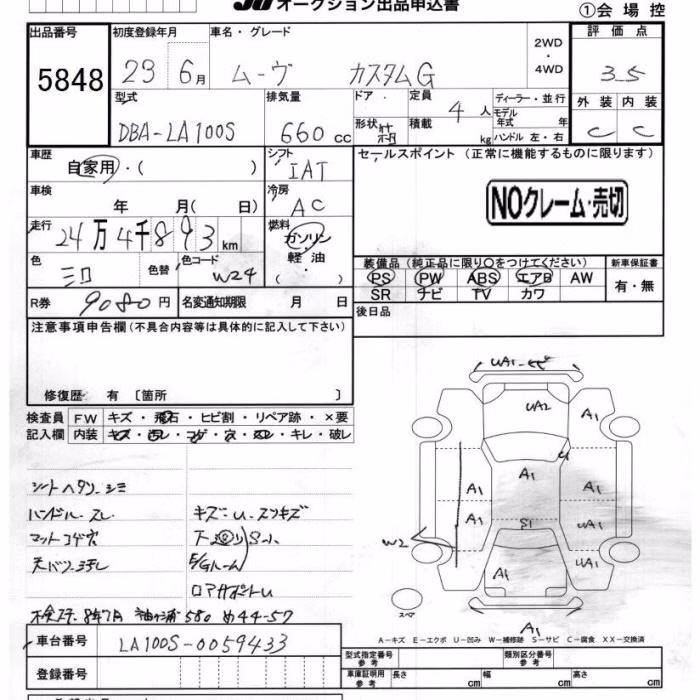 JU オークション出品申込書
①会場控
出品番号 5848
初度登録年月 23 6月
車名・グレード ムーヴ カスタムG
2WD・4WD
評価点 3.5
型式 DBA-LA100S
排気量 660cc
ドア・形状
定員 4人
積載 kg
ディーラー・並行
モデル年式 年
ハンドル 左・右
外装 C
内装 C
車歴 自家用・( )
シフト IAT
セールスポイント (正常に機能するものに限ります)
車検 年 月( 日)
冷房 AC
NOクレーム・売切
走行 24万4千893km
燃料 ガソリン・軽油・( )
色 色替
色コード W24
装備品(純正品に限り○をつけてください)
新車保証書
PS PW ABS エアB AW
有・無
SR ナビ TV カワ
R券 9080円
名変通知期限 月 日
後日品
注意事項申告欄(不具合内容等は具体的に記入して下さい)
修復歴 有 〔箇所 〕
検査員記入欄
FW キズ・飛石・ヒビ割・リペア跡・×要
内装 キズ・・コゲ・穴・・キレ・破レ
シートヘタリ.シミ
ハンドル.スレ
キズ=U.スリキズ
マットコゲ穴
下廻りS小
E/Gルーム
ロアサポートU
580 44-57
UA1
UA2
A1
U
A1
A1
A1
A1
S1
UA1
W2
A1
UA1
A1
スペア
A-キズ E-エクボ U-凹み W-補修跡 S-サビ C-腐食 XX-交換済
車台番号 LA100S-0059433
型式指定番号 参考
類別区分番号 参考
登録番号
車庫証明用 参考
長さ cm
幅 cm
高さ cm